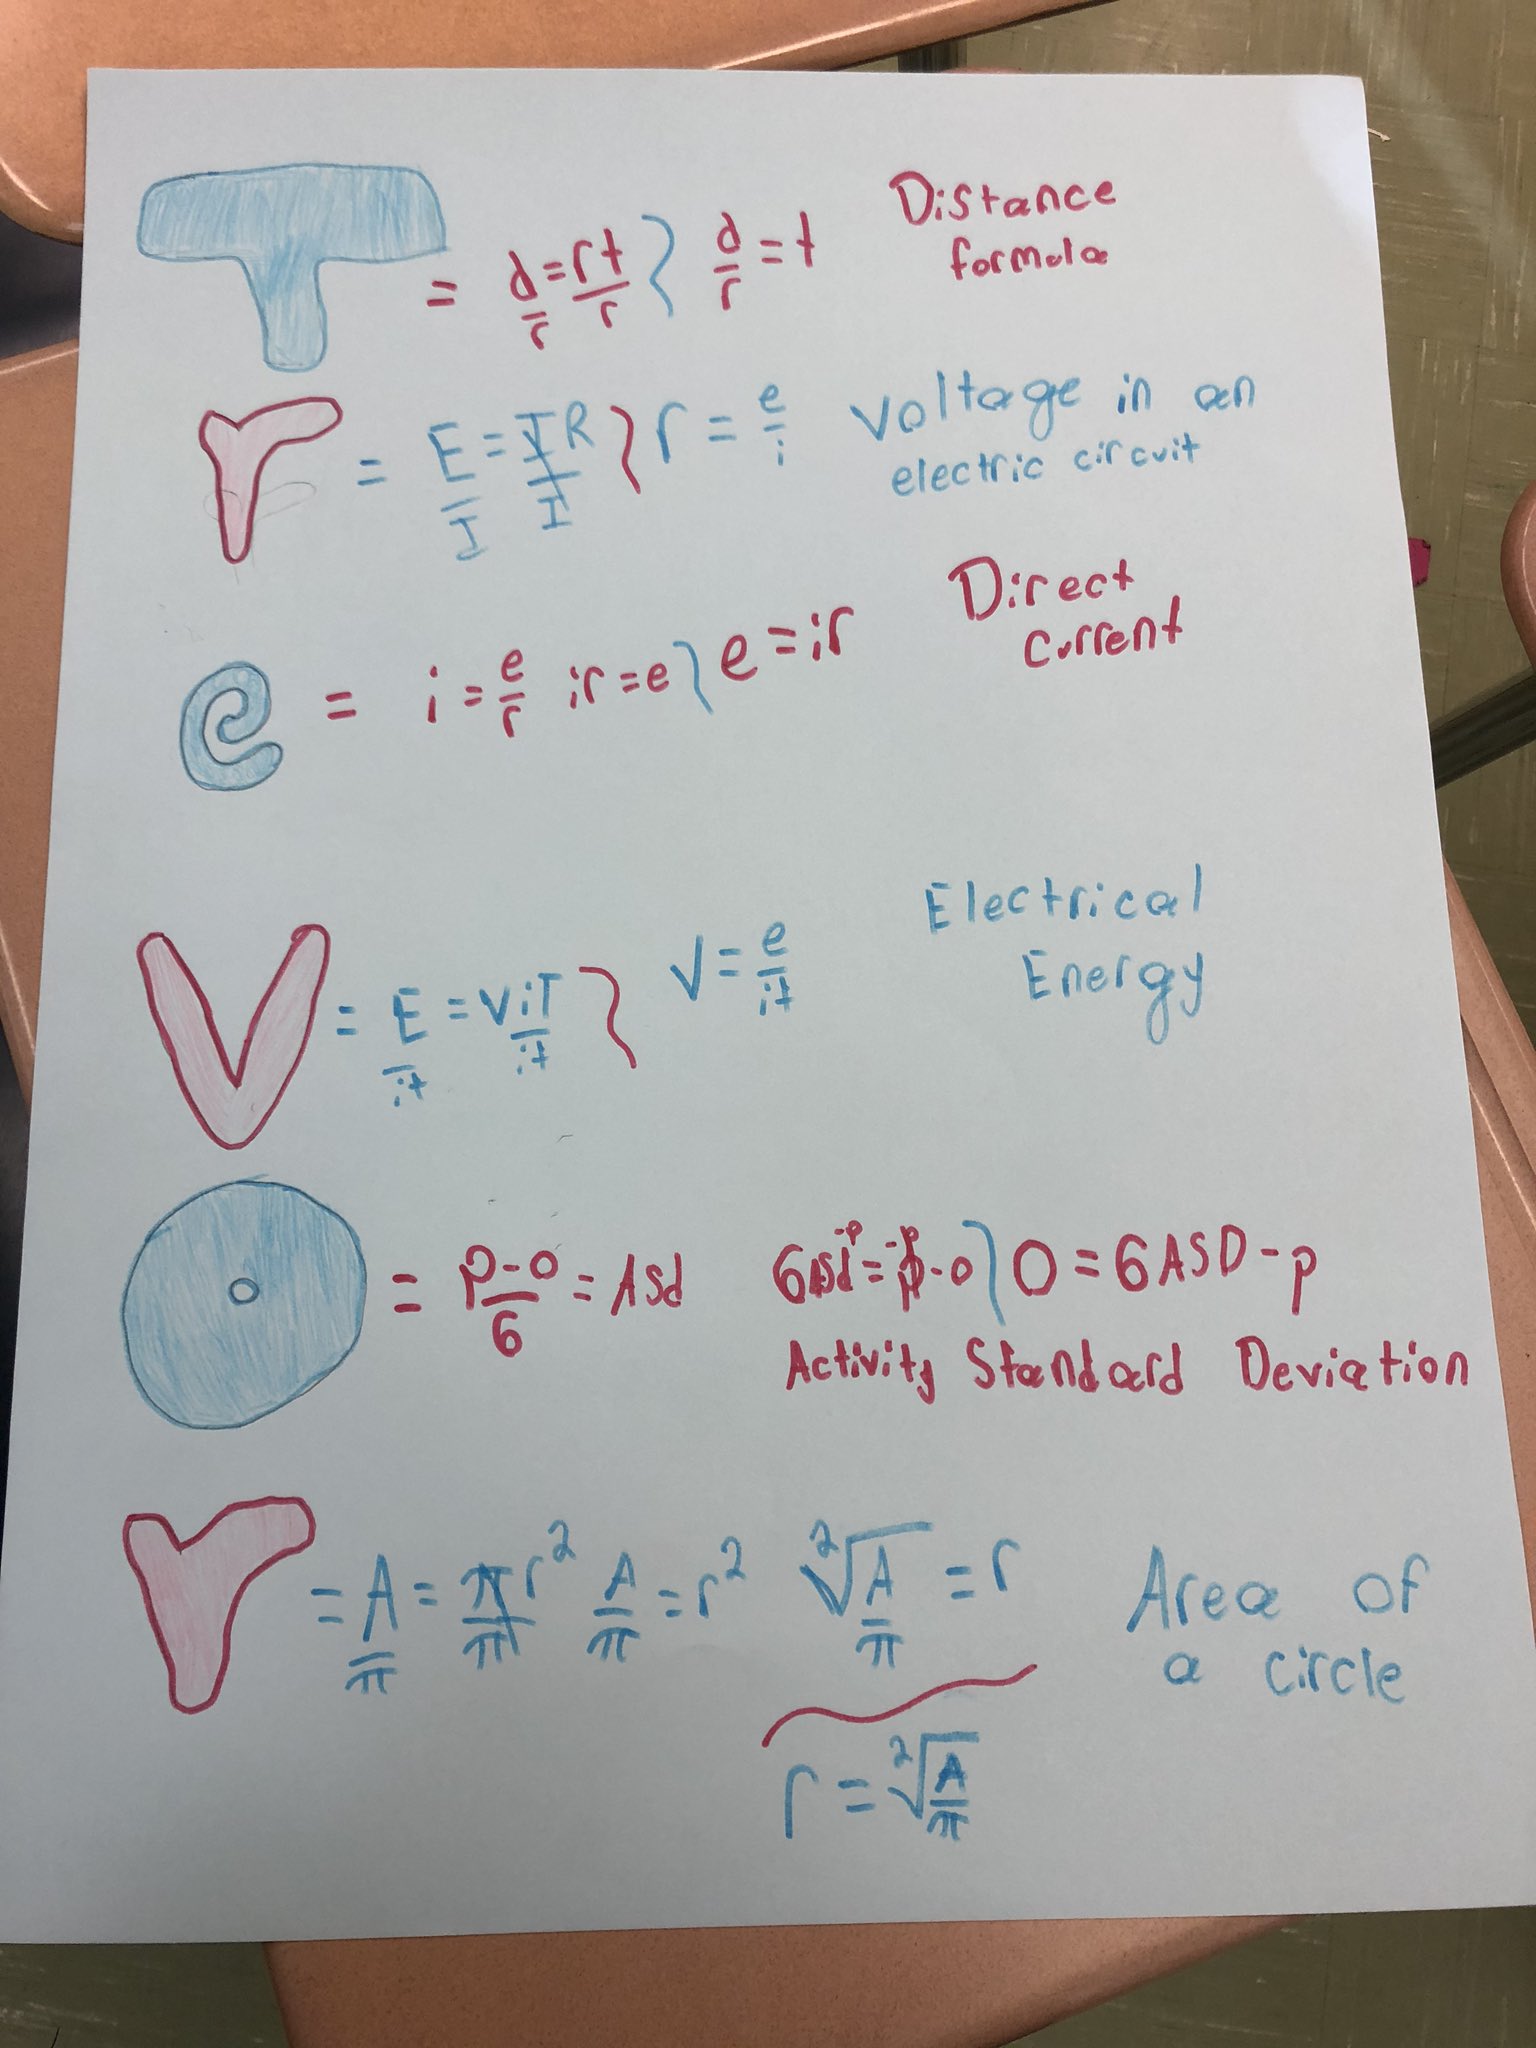 T = d/r = rt/r } d/r = t Distance
formula
r = E/I = IR/I } r = e/i Voltage in an
electric circuit
e = i = e/r ir = e } e = ir Direct
current
V = E/it = ViT/it } V = e/it Electrical
Energy
O = p-o/6 = Asd 6Asd-p = -p p-o } O = 6ASD-p
Activity Standard Deviation
r = A/π = πr²/π A/π = r² ²√A/π = r Area of
a circle
r = ²√A/π